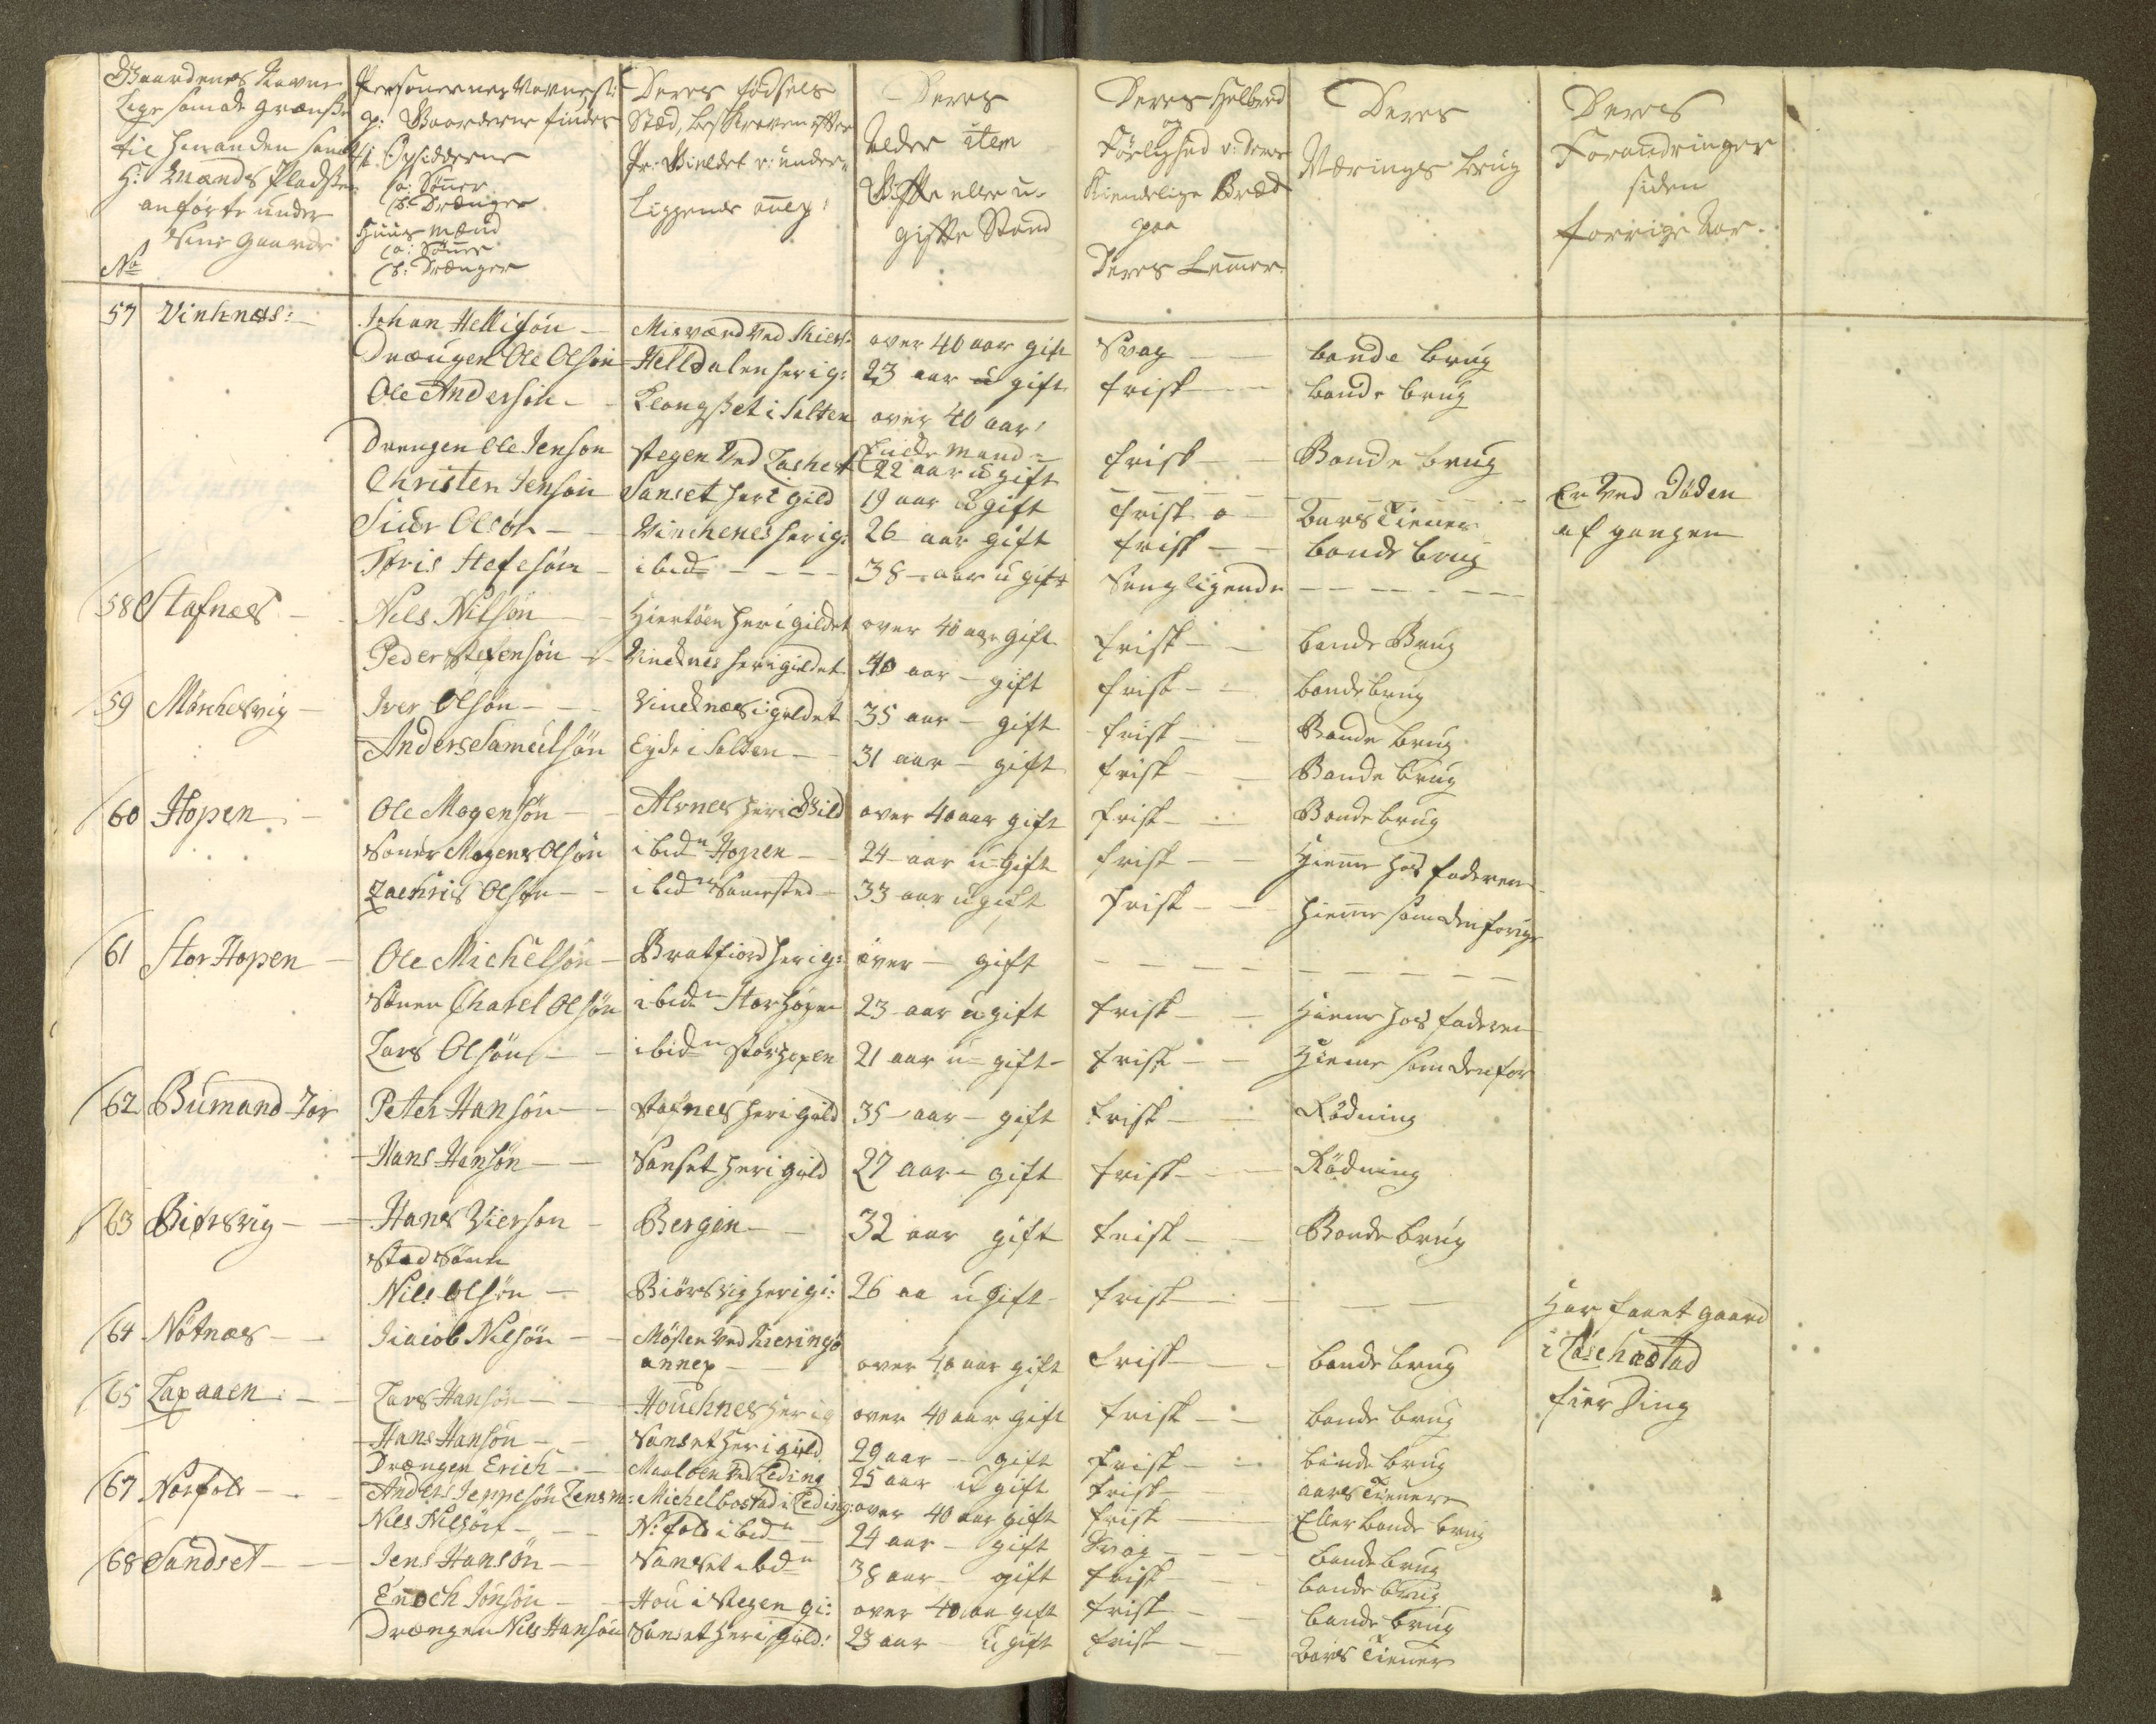 Gaardenes Navne
Lige som de grænser
til hinanden samt
H: Mands Pladser
anførte under
deres Gaarde
No
Personernes Navne
p: Gaarderne findes
Opsidderne
a: Sønner
b: Drænger
Huusmænd
a: Sønner
b: Drænger
Deres fødsels
Stæd, beskreven efter
Pr: Gieldet
Liggende anex:
Deres
Alder item
Gifte eller u-
gifte Stand
Deres Helbred
og
Førlighed
Kiendelige Bræk
paa
Deres Lemmer
Deres
Nærings brug
Deres
Forandringer
siden
forrige Aar.
57 Vinknæs: Johan Helligsøn Misværd Ved Skierst: over 40 aar gift Svag bonde brug
Drængen Ole Olsøn Helldalen her i g: 23 aar u gift frisk bonde brug
Ole Andersøn Leongset i Salten over 40 aar
Enkemand frisk Bonde brug
Drengen Ole Jenson Stegen Ved 22 aar u gift
Christen Jensøn Sanset her i gield 19 aar u gift frisk Aars Tiener Er Ved Døden
af gangen
Siver Olsøn Vinchenes her i g: 26 aar gift frisk bonde brug
Toris Stefesøn ibid 38 aar u gift Sengligende
58 Stafnæs Nels Nilsøn Hiertøen her i gildet over 40 aar gift frisk bonde Brug
Peder Stefensøn Vinknes her i gieldet 40 aar gift frisk bonde brug
59 Mørchesvig Iver Olsøn Vincknæs i gieldet 35 aar gift frisk Bonde brug
Anders Samuelsøn Eyde i Salten 31 aar gift frisk Bonde brug
60 Hopen Ole Mogensøn Alsnes her i Gild over 40 aar gift frisk Bonde brug
Søner Mogens Olsøn ibidn Hopen 24 aar u-gift frisk Hieme hos faderen
Zachris Olsøn ibidn Samested 33 aar u gift frisk hieme som den forige
61 Stor Hopen Ole Michelsøn Bratfiord her i g: over gift
Sønen Charel Olsøn ibidn Storhopen 23 aar u gift frisk Hieme hos faderen
Lars Olsøn ibidn Storhopen 21 aar u-gift frisk Hieme som den for
62 Bumand Jor Peter Hansøn Stafnes her i gield 35 aar gift frisk Rødning
Hans Hansøn Sanset her i gield 27 aar gift frisk Rødning
63 Biørsvig Hans Vierson Bergen 32 aar gift frisk Bonde brug
Stedsøn
Nils Olsøn Biørsvig her i gi: 26 aa u gift frisk Har faaet gaard
i
fierding
64 Nøtnæs Jiaiob Nilsøn Møsten Ved Kieringø
annex over 40 aar gift frisk bonde brug
65 Laxaaen Lars Hansøn Houchnes her i g over 40 aar gift frisk bonde brug
Hans Hansøn Sanset her i gield 29 aar gift frisk bonde brug
Drængen Erich Maaløen Ved Leding 25 aar u gift frisk aars Tiener
67 Norfold Anders Jeppesøn Lensm: Michelbostad i Leding: over 40 aar gift frisk Eller bonde brug
Nils Nilsøn N: fold ibidn 24 aar gift Svag bonde brug
68 Sandset Jens Hansøn Sanset ibdn 38 aar gift frisk bonde brug
Enoch Jonsøn Hou i Stegen gi: over 40 aa gift frisk bonde brug
Drængen Nils Hansøn Sanset her i gield: 23 aar u gift frisk Aars Tiener